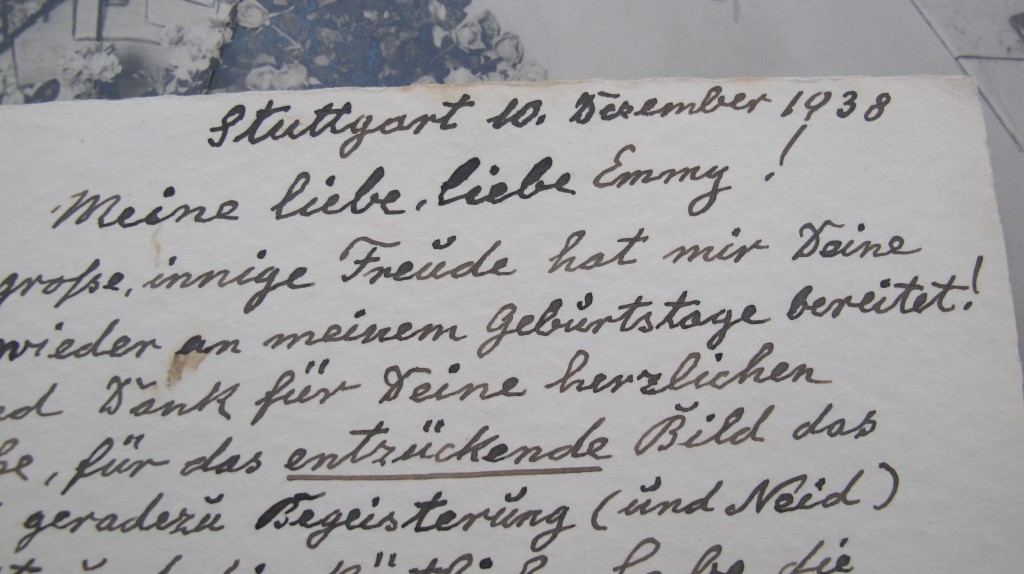 Stuttgart 10. Dezember 1938
Meine liebe, liebe Emmy!
große, innige Freude hat mir Deine
wieder an meinem Geburtstage bereitet!
Dank für Deine herzlichen
für das entzückende Bild das
geradezu Begeisterung (und Neid)
habe die